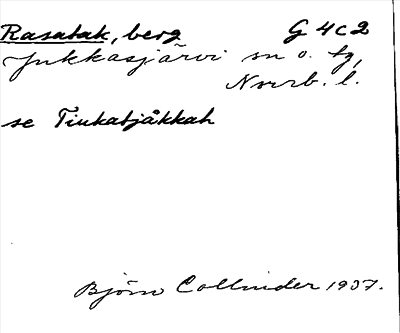 Rasatak, berg G 4c2
Jukkasjärvi sn o. tg,
Norrb. l.
se Tiukatjåkkah
Björn Collinder 1937.